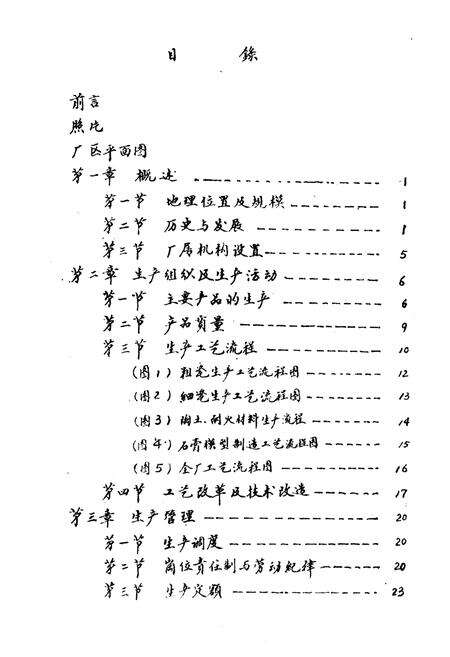 目 录
前言
照片
厂区平面图
第一章 概述 ------------ 1
第一节 地理位置及规模 --------- 1
第二节 历史与发展 ------------ 1
第三节 厂属机构设置 ---------- 5
第二章 生产组织及生产活动 --------- 6
第一节 主要产品的生产 --------- 6
第二节 产品质量 ------------ 9
第三节 生产工艺流程 ---------- 10
(图1)粗瓷生产工艺流程图 ------ 12
(图2)细瓷生产工艺流程图 ------ 13
(图3)陶土、耐火材料生产流程 ------ 14
(图4)石膏模型制造工艺流程图 ----- 15
(图5)全厂工艺流程图 -------- 16
第四节 工艺改革及技术改造 ------ 17
第三章 生产管理 ------------ 20
第一节 生产调度 ------------ 20
第二节 岗位责任制与劳动纪律 ------ 20
第三节 生产定额 ------------ 23